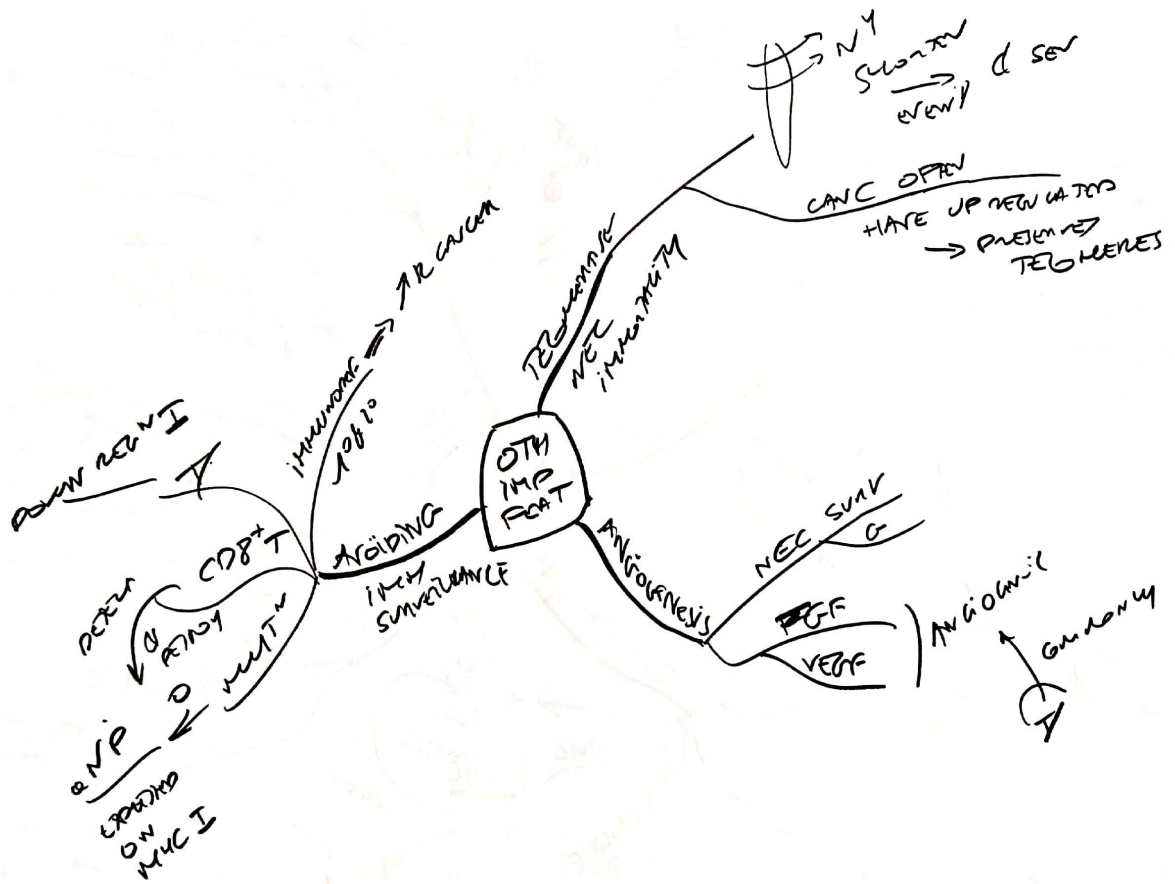 OTH
IMP
FEAT
TELOMERASE
NEC
IMMORTALITY
N
SHORTEN
SEN
CANC OFTEN
HAVE UPREGULATED
→ PRESERVED
TELOMERES
ANGIOGENESIS
NEC SURV
G
FGF
VEGF
ANGIOGENIC
AVOIDING
IMM
SURVEILLANCE
↑R CANCER
1° & 2°
DOWN REGN I
CD8+ T
DETECT
&
MUTN
EXPRESSED
ON
MHC I